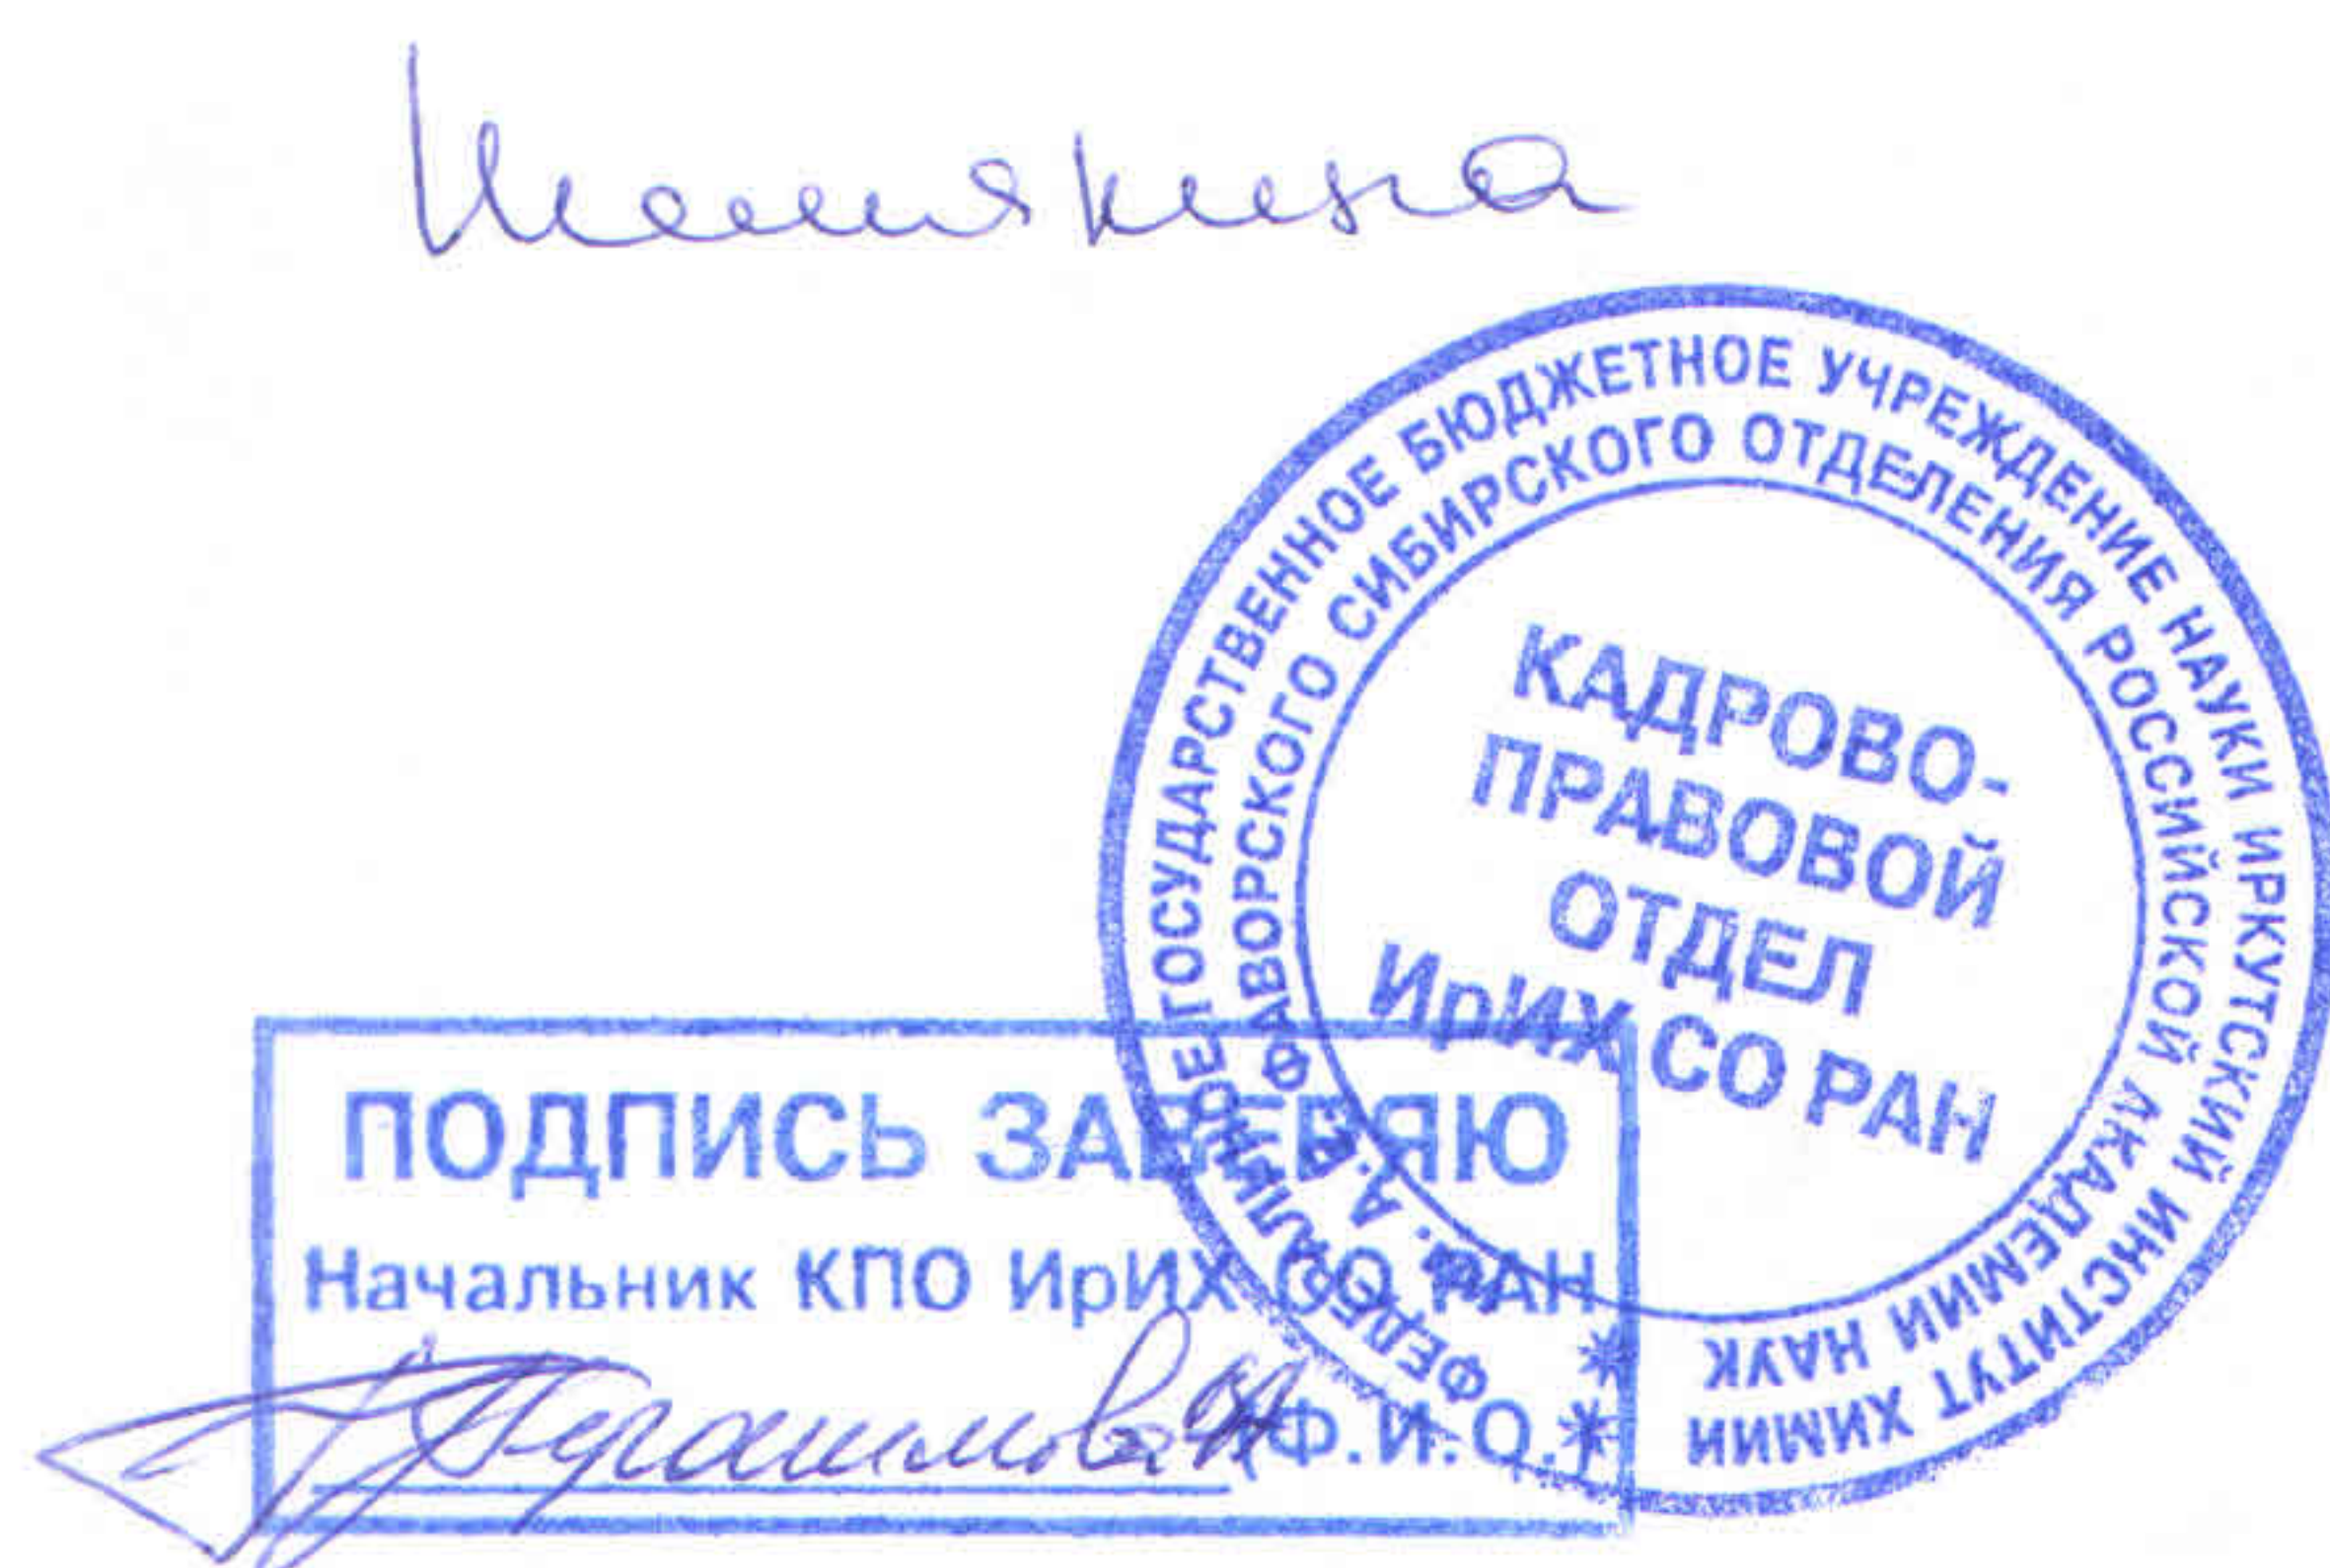 ФЕДЕРАЛЬНОЕ ГОСУДАРСТВЕННОЕ БЮДЖЕТНОЕ УЧРЕЖДЕНИЕ НАУКИ ИРКУТСКИЙ ИНСТИТУТ ХИМИИ
ИМ. А.Е. ФАВОРСКОГО СИБИРСКОГО ОТДЕЛЕНИЯ РОССИЙСКОЙ АКАДЕМИИ НАУК
КАДРОВО-
ПРАВОВОЙ
ОТДЕЛ
ИрИХ СО РАН
ПОДПИСЬ ЗАВЕРЯЮ
Начальник КПО ИрИХ СО РАН
(Ф.И.О.)